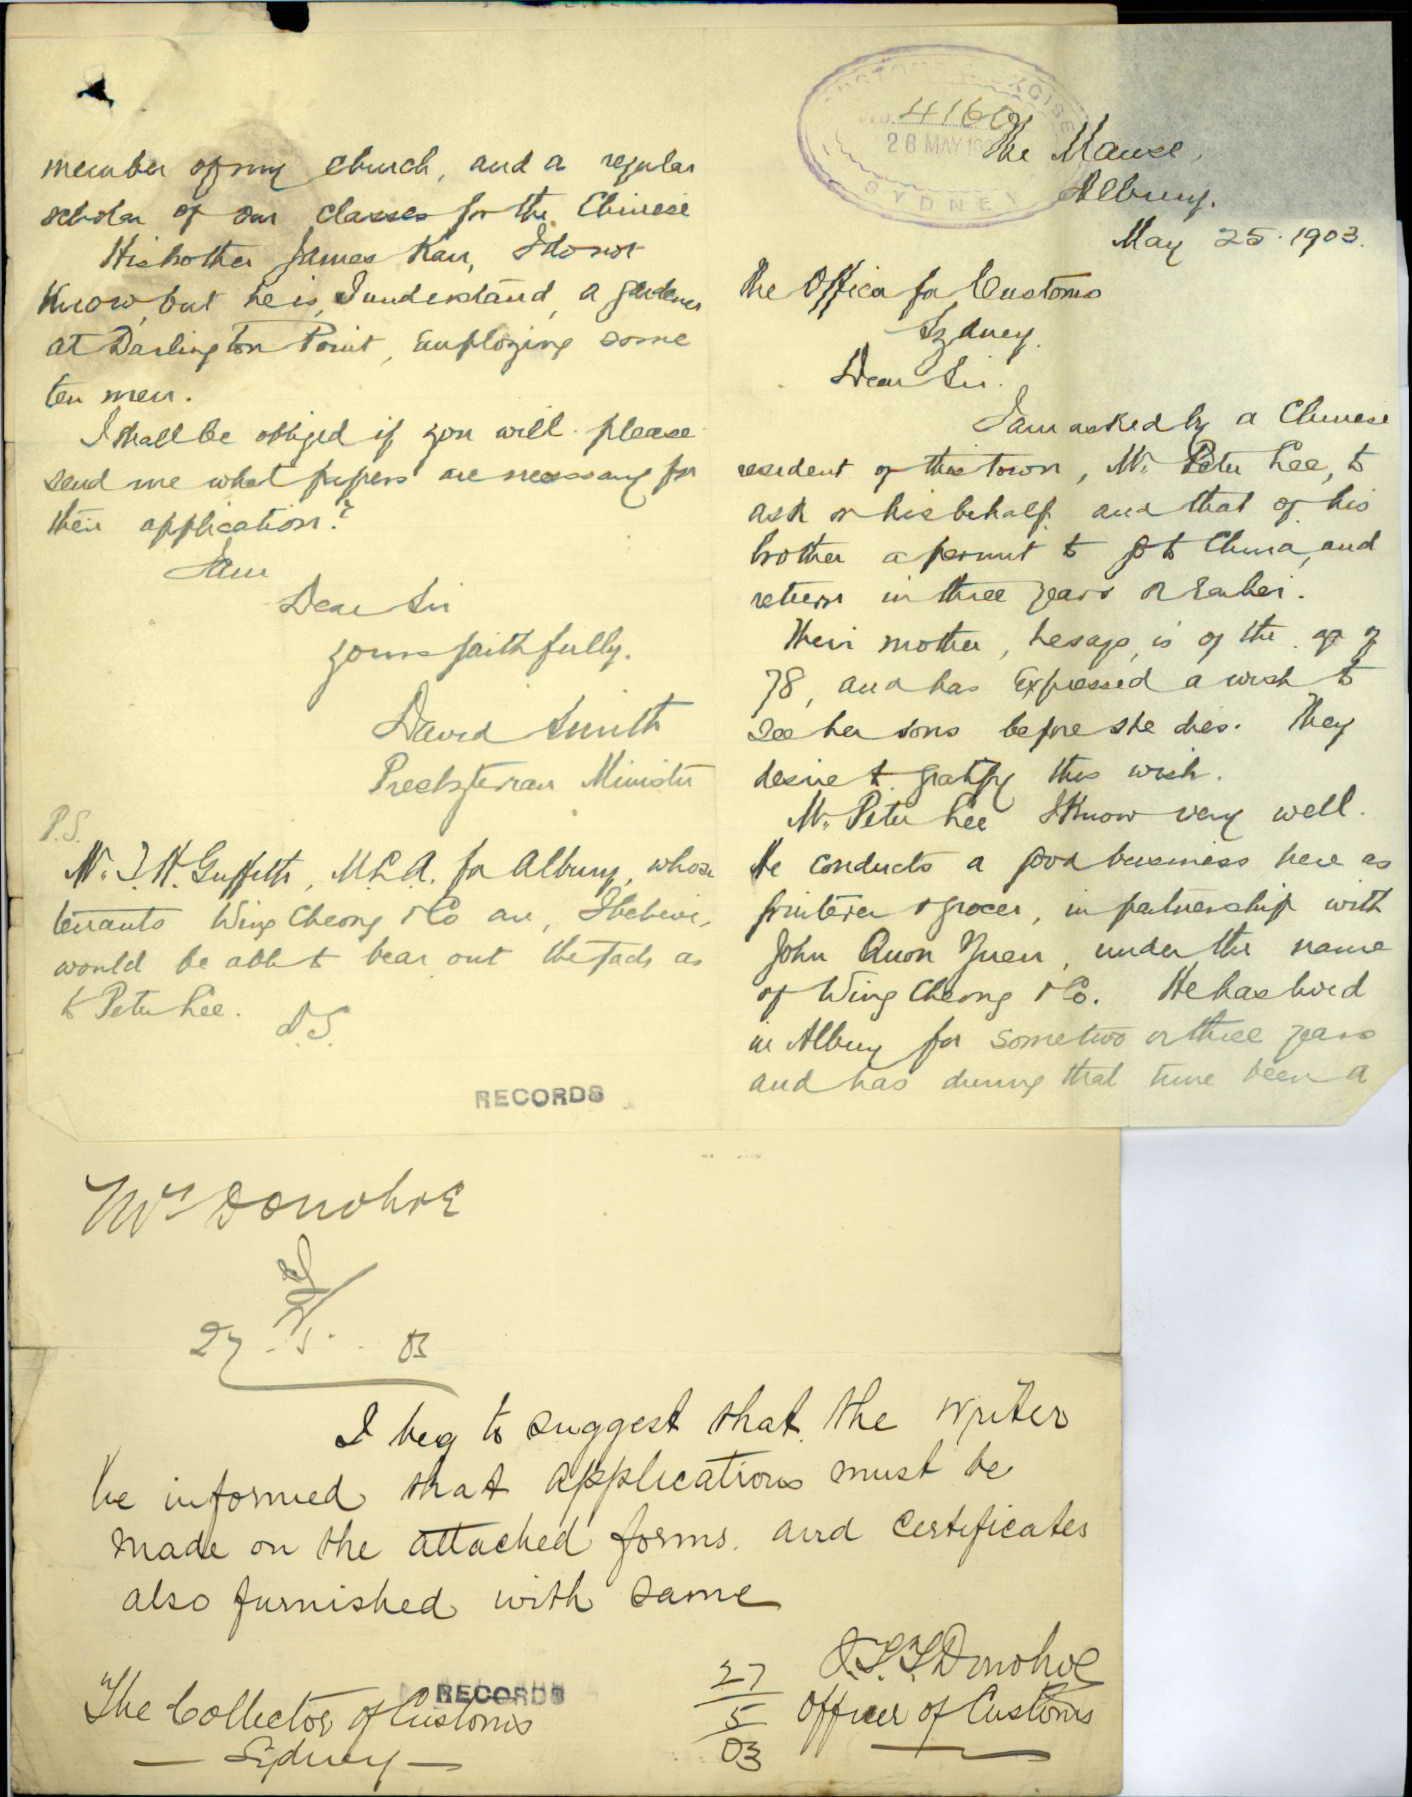 CUSTOMS EXCISE
No. 4160
28 MAY 19
SYDNEY
The Manse,
Albury.
May 25. 1903.
The Officer for Customs
Sydney.
Dear Sir.
I am asked by a Chinese
resident of this town, Mr. Peter Lee, to
ask on his behalf and that of his
brother a permit to go to China, and
return in three years or earlier.
Their mother, he says, is of the age of
78, and has expressed a wish to
see her sons before she dies. They
desire to gratify this wish.
Mr. Peter Lee I know very well.
He conducts a good business here as
fruiterer & grocer, in partnership with
John Quon Yuen, under the name
of Wing Cheong & Co. He has lived
in Albury for some two or three years
and has during that time been a
member of my church, and a regular
scholar of our classes for the Chinese
His brother James Kan, I do not
know, but he is, I understand, a gardener
at Darlington Point, employing some
ten men.
I shall be obliged if you will please
send me what papers are necessary for
their application?
I am
Dear Sir
yours faithfully.
David Smith
Presbyterian Minister
P.S.
Mr. T. H. Griffith, M.L.A. for Albury, whose
tenants Wing Cheong & Co are, I believe,
would be able to bear out the facts as
to Peter Lee.
D.S.
RECORDS
Mr Donohoe
27.5.03
I beg to suggest that the writer
be informed that applications must be
made on the attached forms. and certificates
also furnished with same
J.T.T. Donohoe
Officer of Customs
27
5
03
The Collector of Customs
RECORDS
Sydney